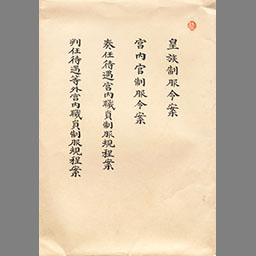 皇族制服令案
宮内官制服令案
奏任待遇宮内職員制服規程案
判任待遇等外宮内職員制服規程案